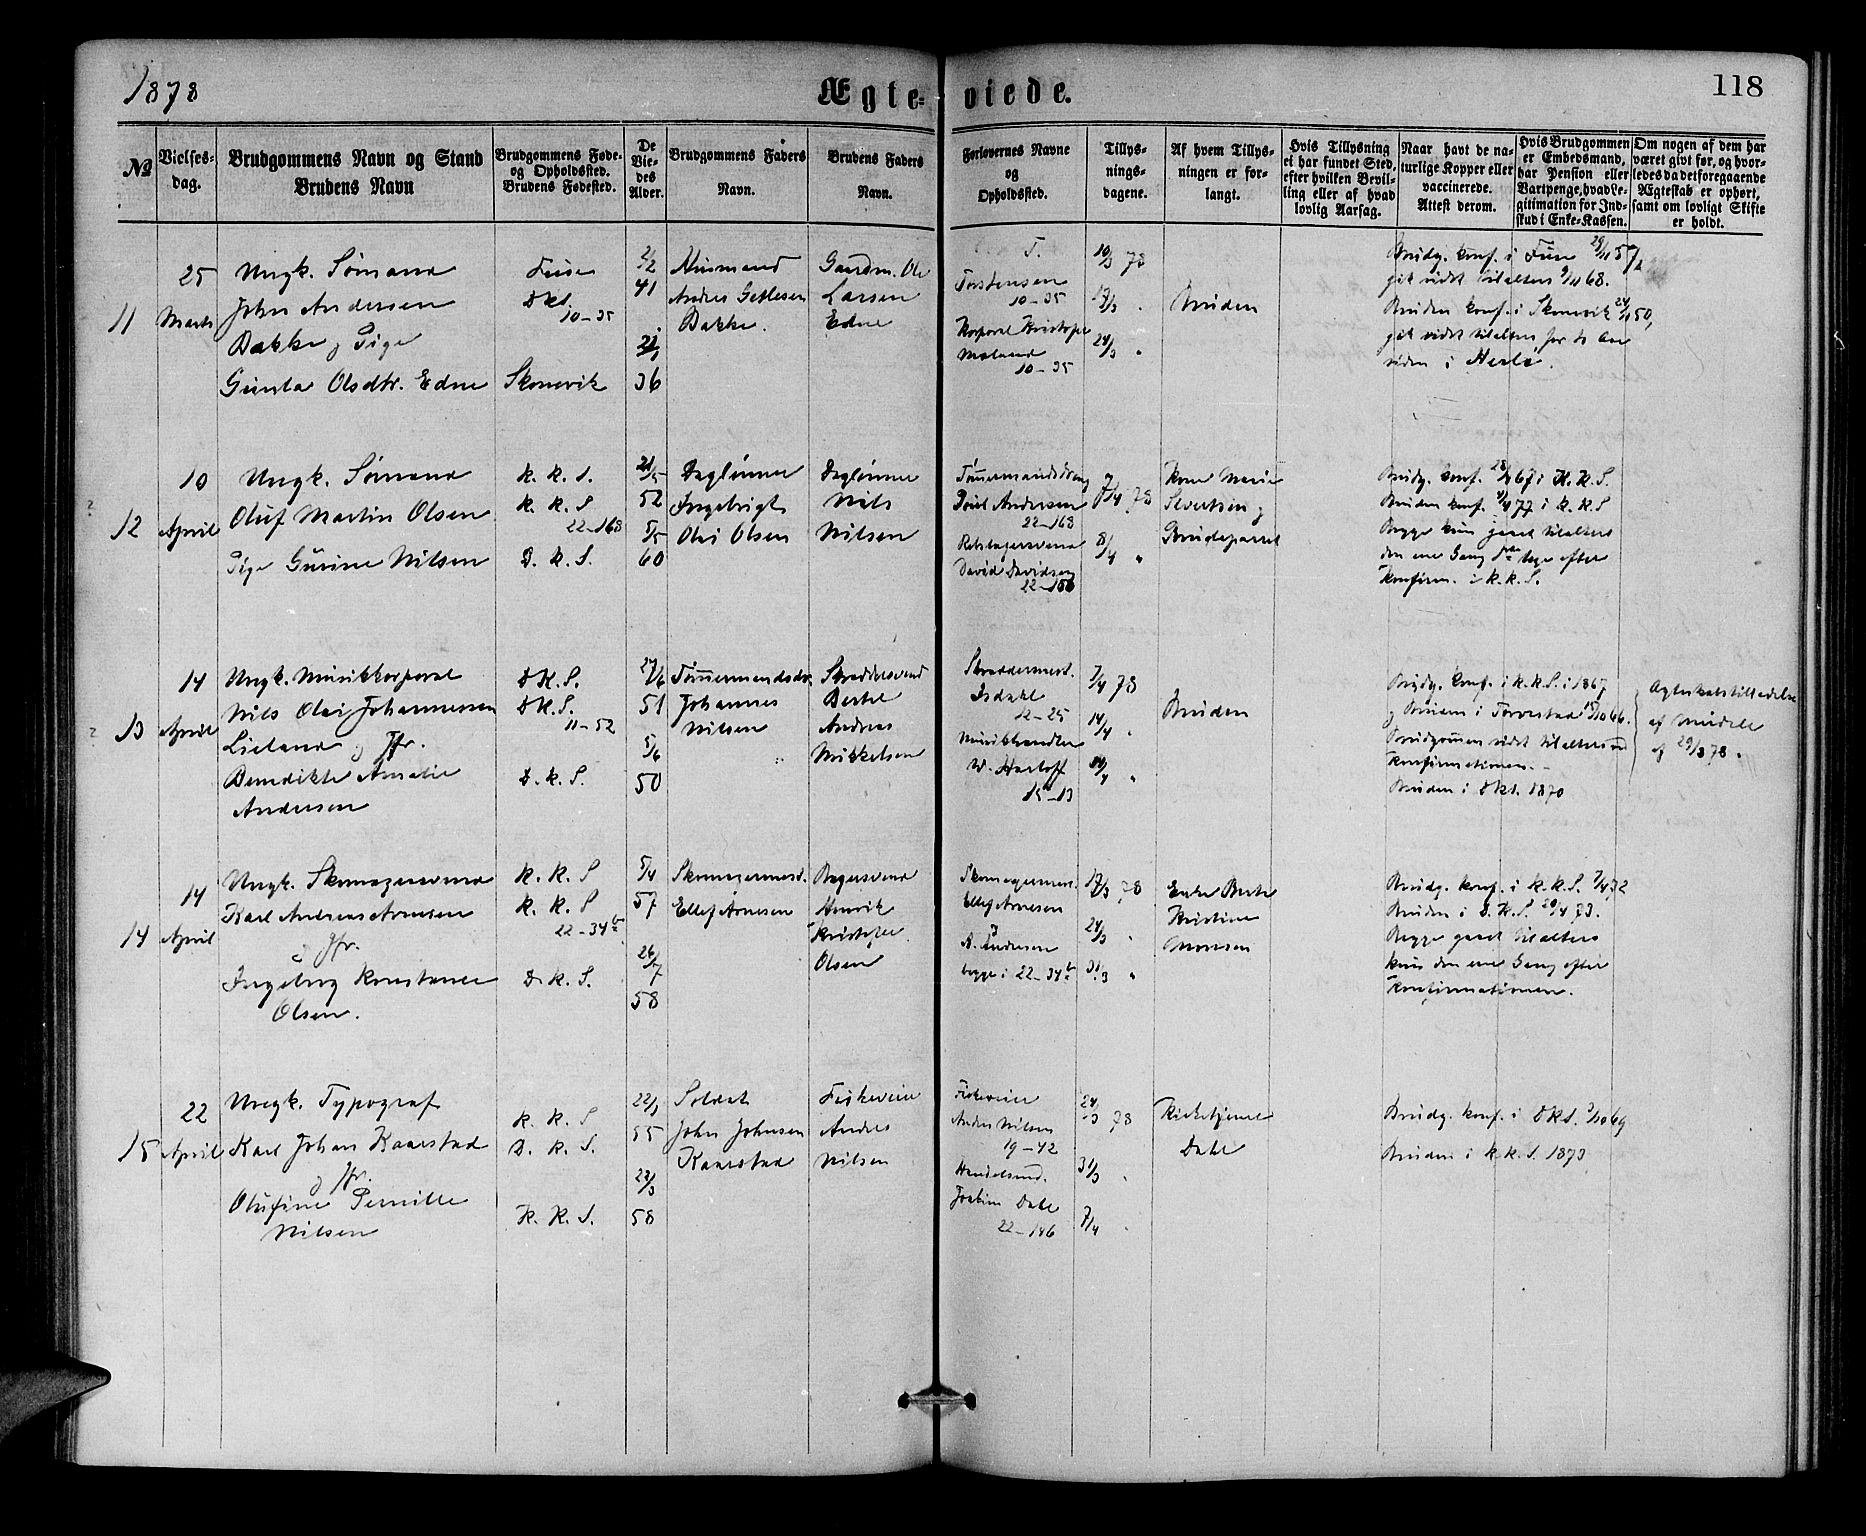 1878
Ægte-viede.
118
No
Vielses-dag.
Brudgommens Navn og Stand
Brudens Navn
Brudgommens Føde- og Opholdssted.
Brudens Fødested.
De Vie-des Alder.
Brudgommens Faders Navn.
Brudens Faders Navn.
Forlovernes Navne og Opholdssted.
Tillys-nings-dagene.
Af hvem Tillys-ningen er for-langt.
Hvis Tillysning ei har fundet Sted, efter hvilken Bevil-ling eller af hvad lovlig Aarsag.
Naar havt de na-turlige Kopper eller vaccinerede. Attest derom.
Hvis Brudgommen er Embedsmand, har Pension eller Vartpenge, hvad Le-gitimation for Ind-skud i Enke-Kassen.
Om nogen af dem har været givt før, og hvor-ledes da det foregaaende Ægteskab er ophørt, samt om lovligt Skifte er holdt.
11
25
Marts
Ungk. Sømand
John Andersen
Bakke og Pige
Gunla Olsdtr. Edne
Dks.
10-35
Skonevik
41
36
Husmand
Andres Getlesen
Bakke.
Gaardm. Ole
Larsen
Edne
T.
Torstensen
10-35
Korporal Kristofer
Moland
10-35
10/3 78
17/3
24/3 "
Bruden
Brudg. konf. i
gik sidst tilalters 9/11 68.
Bruden konf. i Skonevik
gik sidst tilalters for to Aar
siden i
12
10
April
Ungk. Sømand
Oluf Martin Olsen
Pige Gurine Nilsen
K. K. S.
K. K. S
22-168
D. K. S.
21/5
52
5/5
60
Daglønner
Ingebrigt
Olei Olsen
Daglønner
Nils
Nilsen
Tømmermandsdreng
Andersen
22-168
Rebslagersvend
David Davidsen
7/4 78
8/4 "
Kone Marie
Sivertsen og
Brudeparret
Brudg. konf. 28/4 67 i K. K. S.
Bruden konf. 4/4 77 i K. K. S
Begge kun gaaet tilalters
den ene Gang efter
Konfirm. i K. K. S.
13
14
April
Ungk. Musikkorporal
Nils Olei Johannessen
Lieland og Jfr.
Benedikte Amalie
Andersen
D K. S.
DK. S.
11-52
D. K. S.
27/6
51
5/6
50
Tømmermandsdr.
Johannes
Nilsen
Skræddersvend
Bertel
Andreas
Mikkelsen
Skræddermest.
Isdahl
12-25
Musikhandler
W. Hartoff
15-13
7/4 78
14/4 "
Bruden
Brudg. konf. i K. K. S. i 1867
og Bruden i Torvestad 66.
Brudgommen sidst tilalters ved
Konfirmationen.-
Bruden i Dks. 1870
Ægteskabstilladelse
af
af 29/3 78.
14
14
April
Ungk. Skomagersvend
Karl Andreas Arnesen
og Jfr.
Ingeborg Konstance
Olsen.
K. K. S
K. K. S
22-34b
D. K. S.
5/4
57
26/7
58
Skomagermest.
Ellef Arnesen
Bagersvend
Henrik
Kristofer
Olsen
Skomagermest.
Ellef Arnesen
A. Andresen
begge i 22-34b
17/3 78
24/3 "
31/3 "
Enke Berte
Kristine
Monsen
Brudg. konf. i K. K. S. 7/4 72
Bruden i D. K. S. 20/4 73.
Begge gaaet tilalters
kun den ene Gang efter
Konfirmationen.
15
22
April
Ungk. Typograf
Karl Johan Kaarstad
og Jfr.
Olufine Pernille
Nilsen
K. K. S
D. K. S.
K. K. S.
22/1
55
22/3
58
Soldat
John Johnsen
Kaarstad
Fiskeveier
Andres
Nilsen
Fiskeveier
Andres Nilsen
19-42
Handelsmd.
Joakim Dahl
22-146
24/3 78
31/3 "
7/4 "
Kirketjener
Dahl
Brudg. konf. i DKS. 3/10 69
Bruden i K. K. S. 1873